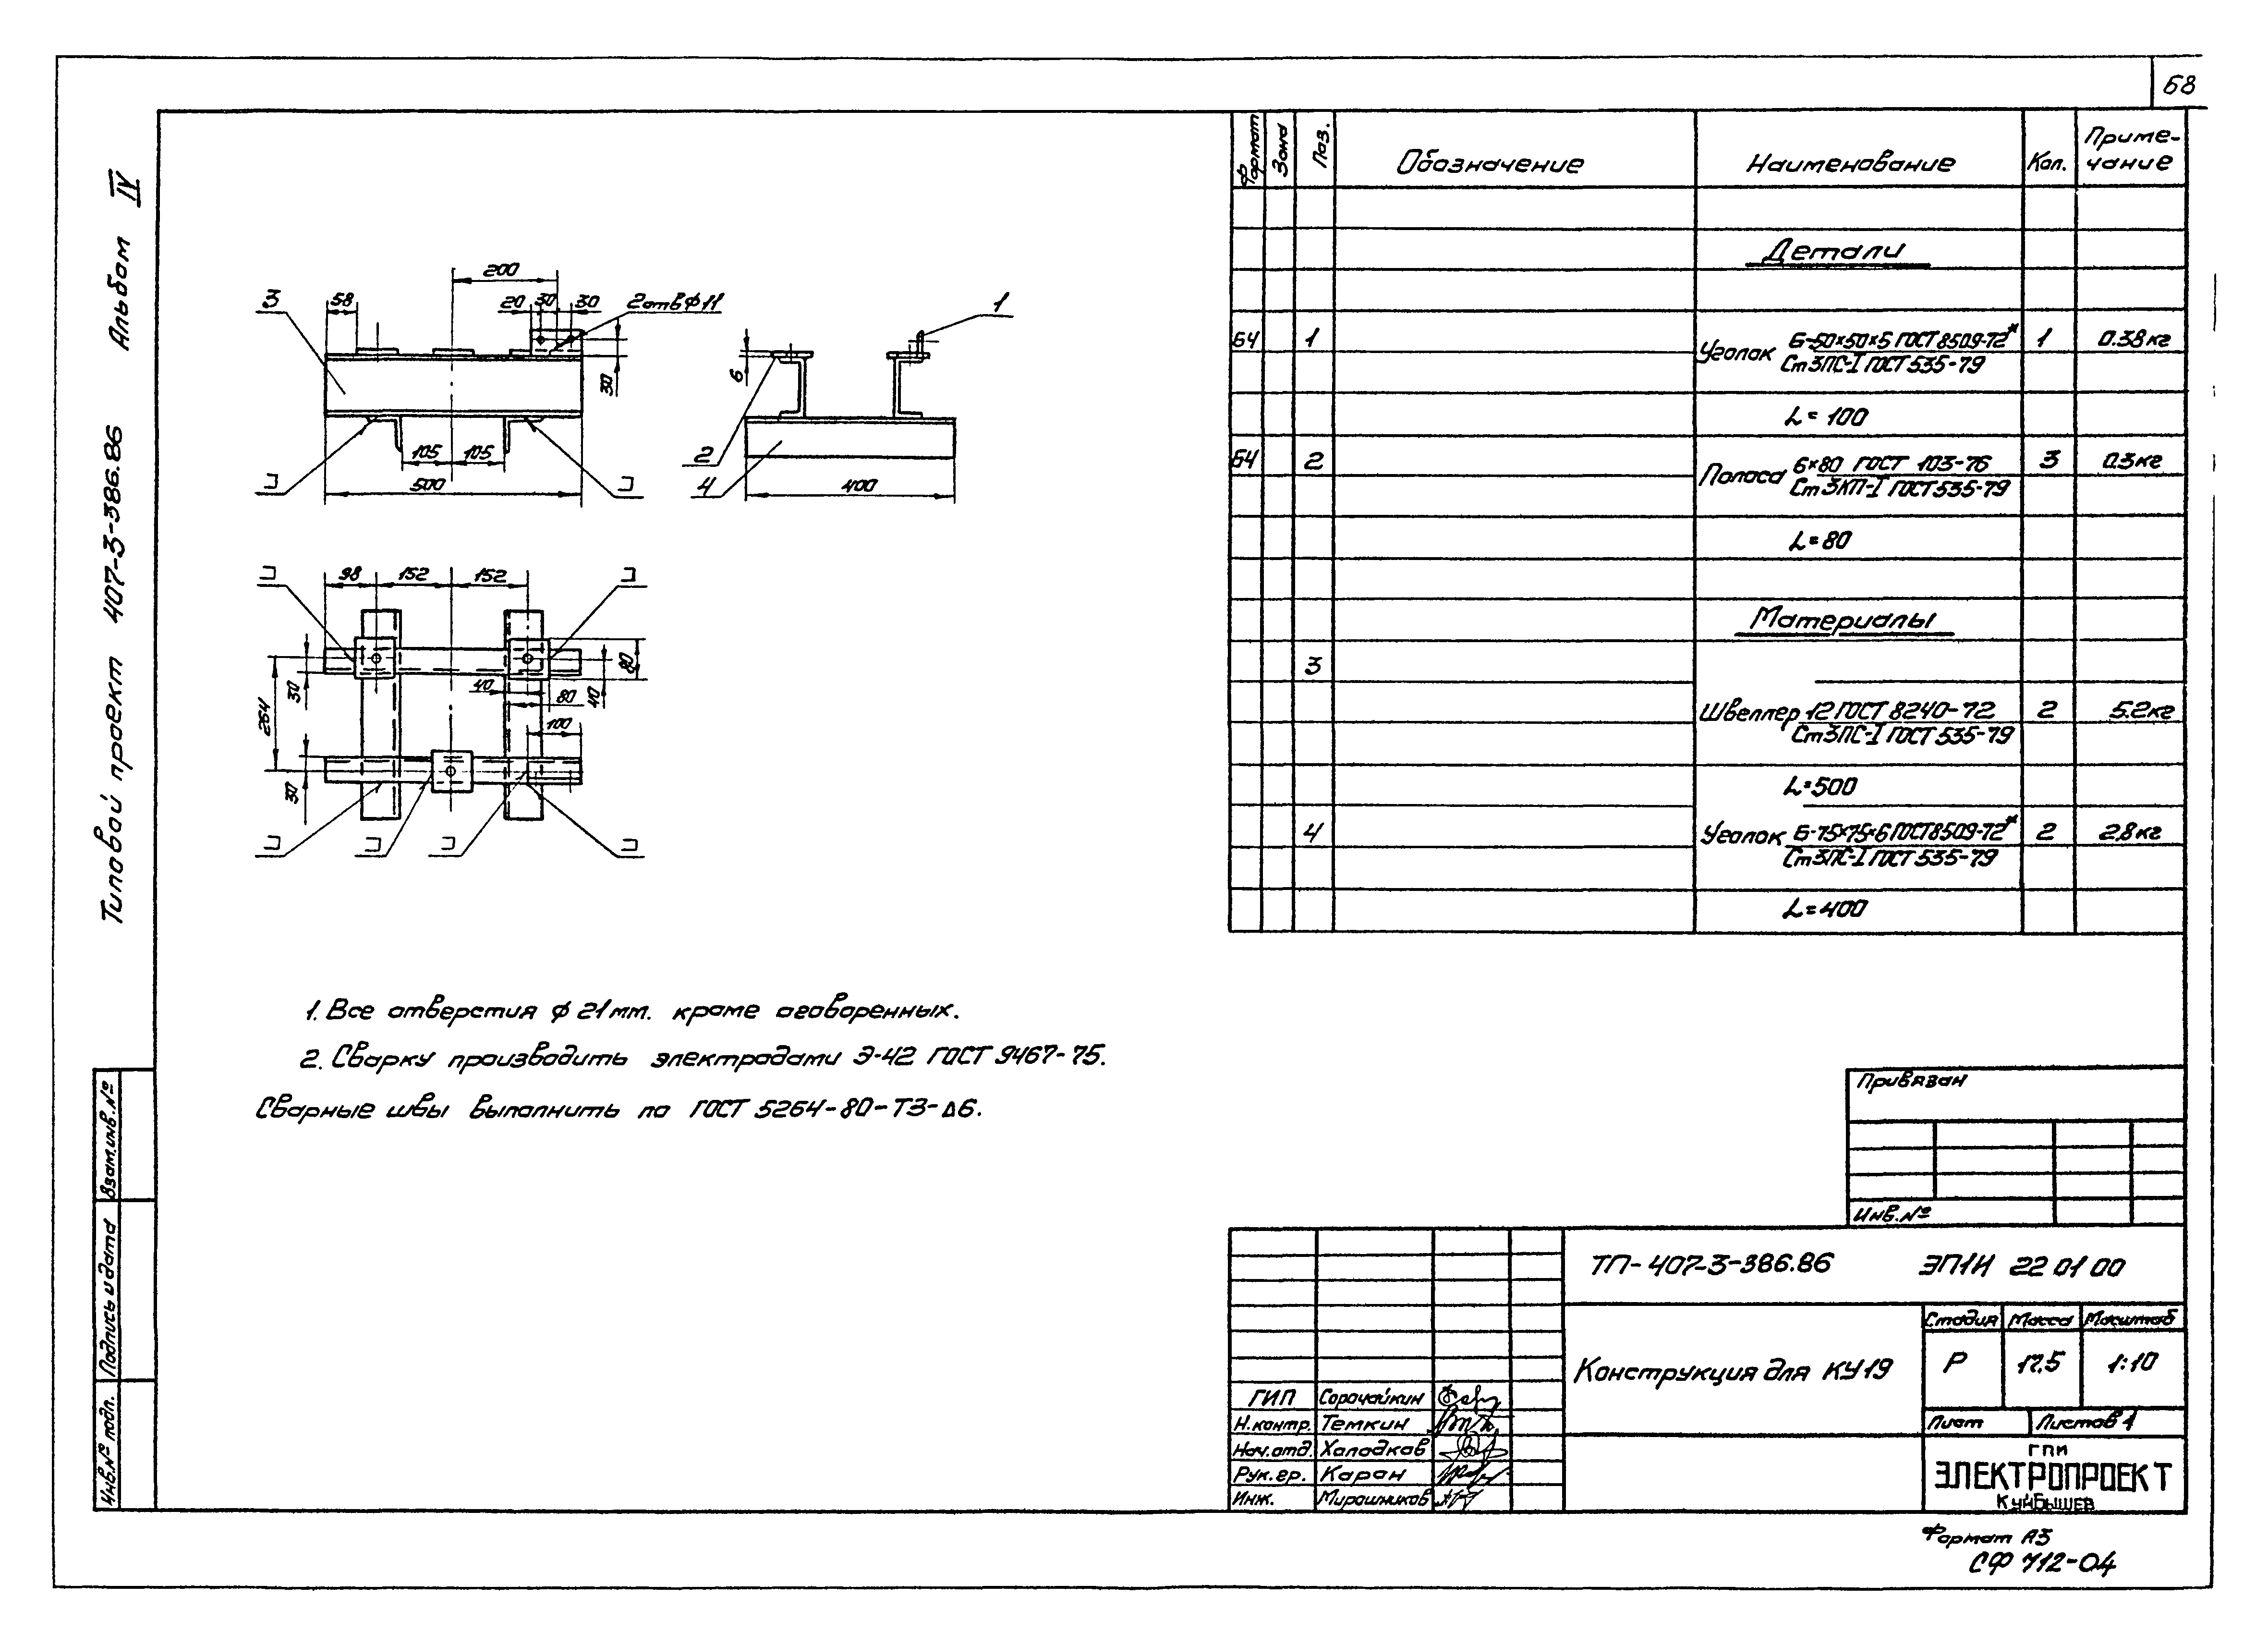 68
Типовой проект 407-3-386.86 Альбом IV
Формат Зона Поз. Обозначение Наименование Кол. Приме-
чание
Детали
Б4 1 Уголок Б-50×50×5 ГОСТ 8509-72* 1 0.38кг
Ст3ПС-I ГОСТ 535-79
L=100
Б4 2 Полоса 6×80 ГОСТ 103-76 3 0.3кг
Ст3КП-I ГОСТ 535-79
L=80
Материалы
3
Швеллер 12 ГОСТ 8240-72 2 5.2кг
Ст3ПС-I ГОСТ 535-79
L=500
4 Уголок Б-75×75×6 ГОСТ 8509-72* 2 2,8кг
Ст3ПС-I ГОСТ 535-79
L=400
200
3 58 20 30 30 2отв Ф11 1
30
6
105 105
2
500
4 400
98 152 152
80
30 40 40
80
264
100
30
1. Все отверстия ф 21мм. кроме оговоренных.
2. Сварку производить электродами Э-42 ГОСТ 9467-75.
Сварные швы выполнить по ГОСТ 5264-80-Т3-Δ6.
Взам.инв.№
Подпись и дата
Инв.№ подл.
Привязан
Инв.№
ТП-407-3-386.86 ЭП1И 22 01 00
Конструкция для КУ19
Стадия Масса Масштаб
Р 17.5 1:10
Лист Листов 1
ГИП Сорочайкин
Н.контр. Темкин
Нач.отд. Холодков
Рук.гр. Каран
Инж. Мирошников
ГПИ
ЭЛЕКТРОПРОЕКТ
Куйбышев
Формат А3
СФ 712-04